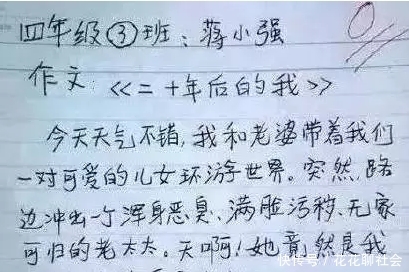 四年级③班:蒋小强
0
作文:<<二十年后的我>>
今天天气不错,我和老婆带着我们
一对可爱的儿女环游世界。突然,路
边冲出一个浑身恶臭、满脸污秽、无家
可归的老太太。天啊!她竟然是我
快传号/花花聊社会